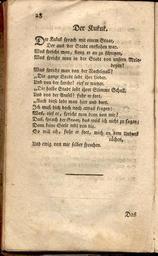 28
Der Kukuk.
Der Kukuk sprach mit einem Staar,
Der aus der Stadt entflohen war.
Was spricht man, fieng er an zu schreyen,
Was spricht man in der Stadt von unsern Melo-
deyen?
Was spricht man von der Nachtigall?
„Die ganze Stadt lobt ihre Lieder.
Und von der Lerche? rief er wieder.
„Die halbe Stadt lobt ihrer Stimme Schall.
Und von der Amsel? fuhr er fort.
„Auch diese lobt man hier und dort.
Ich muß dich doch noch etwas fragen:
Was, rief er, spricht man denn von mir?
Das, sprach der Staar, das weiß ich nicht zu sagen;
Denn keine Seele redt von dir.
So will ich, fuhr er fort, mich an dem Undank
rächen,
Und ewig von mir selber sprechen.
Das